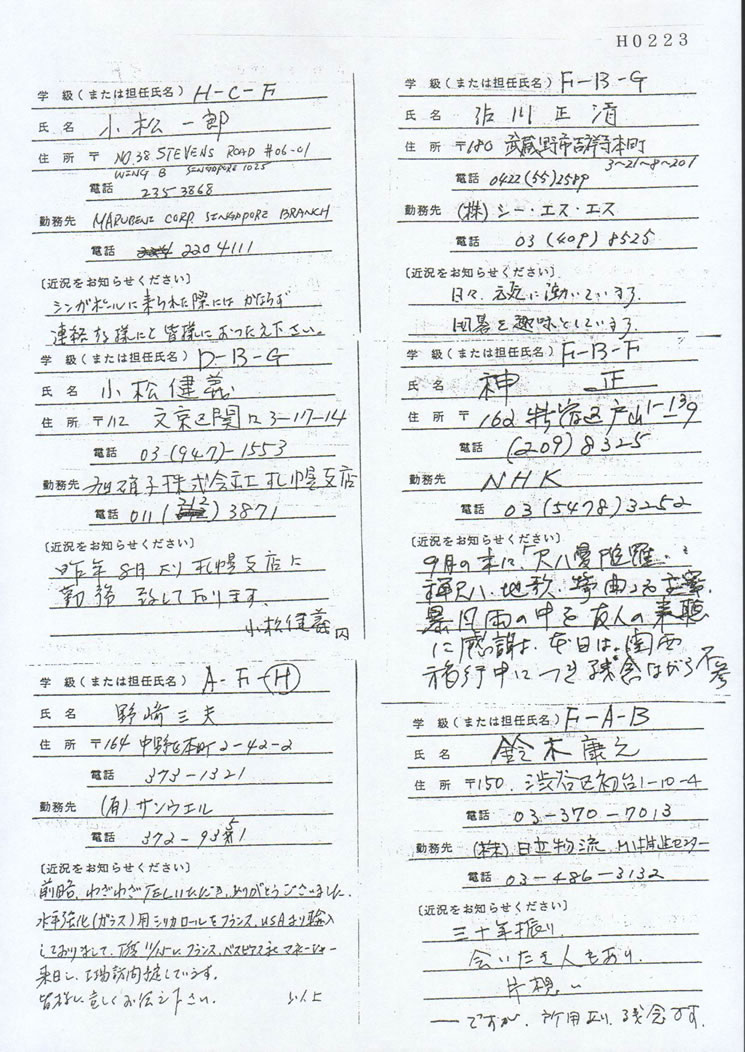 H0223
学 級(または担任氏名) H-C-F
氏 名 小松一郎
住 所 〒 NO.38 STEVENS ROAD #06-01
WING B SINGAPORE 1025
電話 235 3868
勤務先 MARUBENI CORP. SINGAPORE BRANCH
電話 220 4111
〔近況をお知らせください〕
シンガポールに来られた際には かならず
連絡する様にと皆様におつたえ下さい。
学 級(または担任氏名) D-B-G
氏 名 小松健義
住 所 〒112 文京区関口 3-17-14
電話 03(947)-1553
勤務先 旭硝子株式会社札幌支店
電話 011(212)3871
〔近況をお知らせください〕
昨年8月より札幌支店に
勤務 致して居ります.
小松健義 内
学 級(または担任氏名) A-F-H
氏 名 野崎三夫
住 所 〒164 中野区本町2-42-2
電話 373-1321
勤務先 (有)サンウエル
電話 372-9351
〔近況をお知らせください〕
前略, わざわざTELいただき, ありがとうございました.
(ガラス)用シリカロールをフランス, USAより輸入
しておりまして,
来日し, 工場訪問予定しています.
皆様に宜しくお伝え下さい.
学 級(または担任氏名) F-B-G
氏 名 川 正清
住 所 〒180 武蔵野市吉祥寺本町
3-21-8-201
電話 0422(55)2589
勤務先 (株)シー・エス・エス
電話 03(409)8525
〔近況をお知らせください〕
日々, 元気に働いています.
囲碁を趣味としています.
学 級(または担任氏名) F-B-F
氏 名 神 正
住 所 〒 162 新宿区戸山1-13-9
電話 (209)8325
勤務先 NHK
電話 03(5478)3252
〔近況をお知らせください〕
9月の末に、尺八曼陀羅・
禅尺八・地歌・箏曲
暴風雨の中を友人の来聴
に感謝す. 本日は、関西
旅行中につき残念ながら不参
学 級(または担任氏名) F-A-B
氏 名 鈴木康之
住 所 〒150. 渋谷区初台1-10-4
電話 03-370-7013
勤務先 (株)日立物流 センター
電話 03-486-3132
〔近況をお知らせください〕
三十年振り.
会いたき人もあり.
片想い
——ですが、所用あり. 残念です.